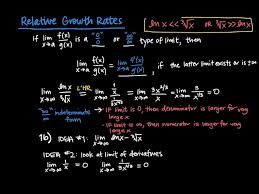 Relative Growth Rates
ln x << ∛x OR ∛x >> ln x
If lim x→a f(x)/g(x) is a "0/0" or "∞/∞" type of limit, then
lim x→a f(x)/g(x) = lim x→a f'(x)/g'(x) if the latter limit exists or is ±∞
lim x→∞ ln x/∛x = L'HR lim x→∞
= lim x→∞ = lim = 0
"∞/∞" indeterminate form
→ If limit is 0, then denominator is larger for very large x
→ If limit is ∞, then numerator is larger for very large x
1b) IDEA #1: lim x→∞ ln x - ∛x
IDEA #2: look at limit of derivatives
lim x→∞ 1/x = 0 lim x→∞ = 0